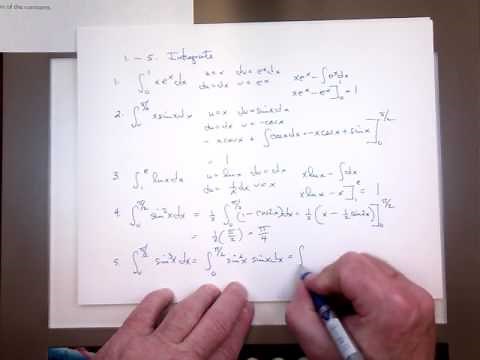 n of the constants.
1. – 5. Integrate
1. ∫₀¹ xeˣdx u=x dv=eˣdx xeˣ – ∫eˣdx
du=dx v=eˣ xeˣ – eˣ]₀¹ = 1
2. ∫₀^π/2 x sinx dx u=x dv=sinx dx
du=dx v=-cosx
-xcosx + ∫cosxdx = -xcosx + sinx]₀^π/2
= 1
3. ∫₁ᵉ lnx dx u=lnx dv=dx xlnx – ∫dx
du=1/x dx v=x xlnx – x]₁ᵉ = 1
4. ∫₀^π/2 sin²x dx = 1/2 ∫₀^π/2 (1-cos2x)dx = 1/2 (x – 1/2 sin2x)]₀^π/2
= 1/2 (π/2) = π/4
5. ∫₀^π/2 sin³x dx = ∫₀^π/2 sin²x sinx dx = ∫